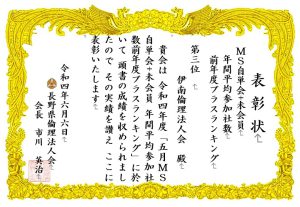 表彰状
MS自単会+未会員
年間平均参加社数
前年度プラスランキング
第三位
伊南倫理法人会 殿
貴会は 令和四年度「五月MS
自単会+未会員 年間平均参加社
数前年度プラスランキング」に於
いて 頭書の成績を収められまし
たので その実績を讃え ここに
表彰いたします
令和四年六月六日
長野県倫理法人会
会長 市川 英治